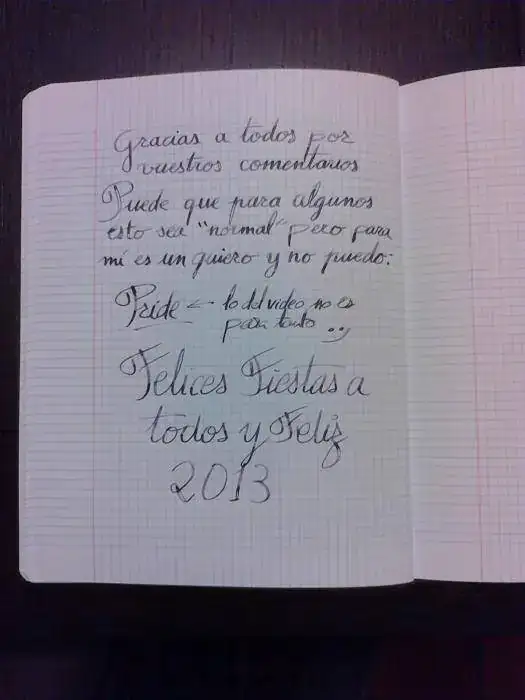 Gracias a todos por
vuestros comentarios
Puede que para algunos
esto sea "normal" pero para
mí es un quiero y no puedo:
Pride ← lo del video no es
para tanto ..;
Felices Fiestas a
todos y Feliz
2013